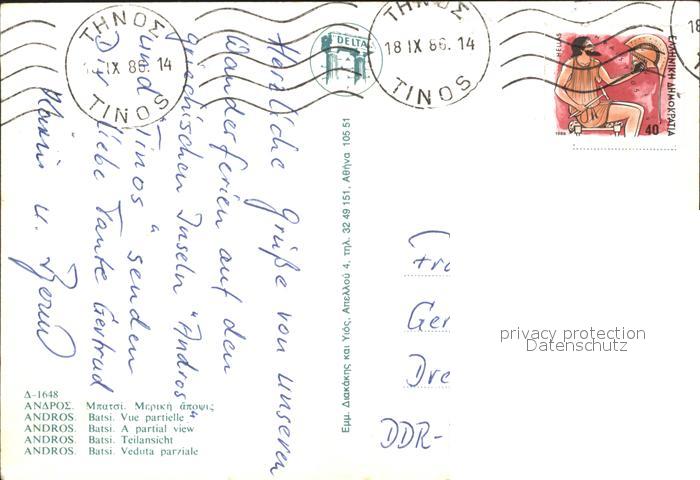 ΤΗΝΟΣ
IX 86. 14
TINOS
ΤΗΝΟΣ
18 IX 86. 14
TINOS
DELTA
HELLAS
ΕΛΛΗΝΙΚΗ ΔΗΜΟΚΡΑΤΙΑ
1986
40
Herzliche Grüße von unseren
Wanderferien auf den
griechischen Inseln "Andros"
und "Tinos" senden
Dir liebe Tante Gertrud
u.
Εμμ. Διακάκης και Υιός, Απελλού 4, τηλ. 32 49 151, Αθήνα 105 51
Fra
Ger
Dre
DDR-
privacy protection
Datenschutz
Δ-1648
ΑΝΔΡΟΣ. Μπατσί. Μερική άποψις
ANDROS. Batsi. Vue partielle
ANDROS. Batsi. A partial view
ANDROS. Batsi. Teilansicht
ANDROS. Batsi. Veduta parziale